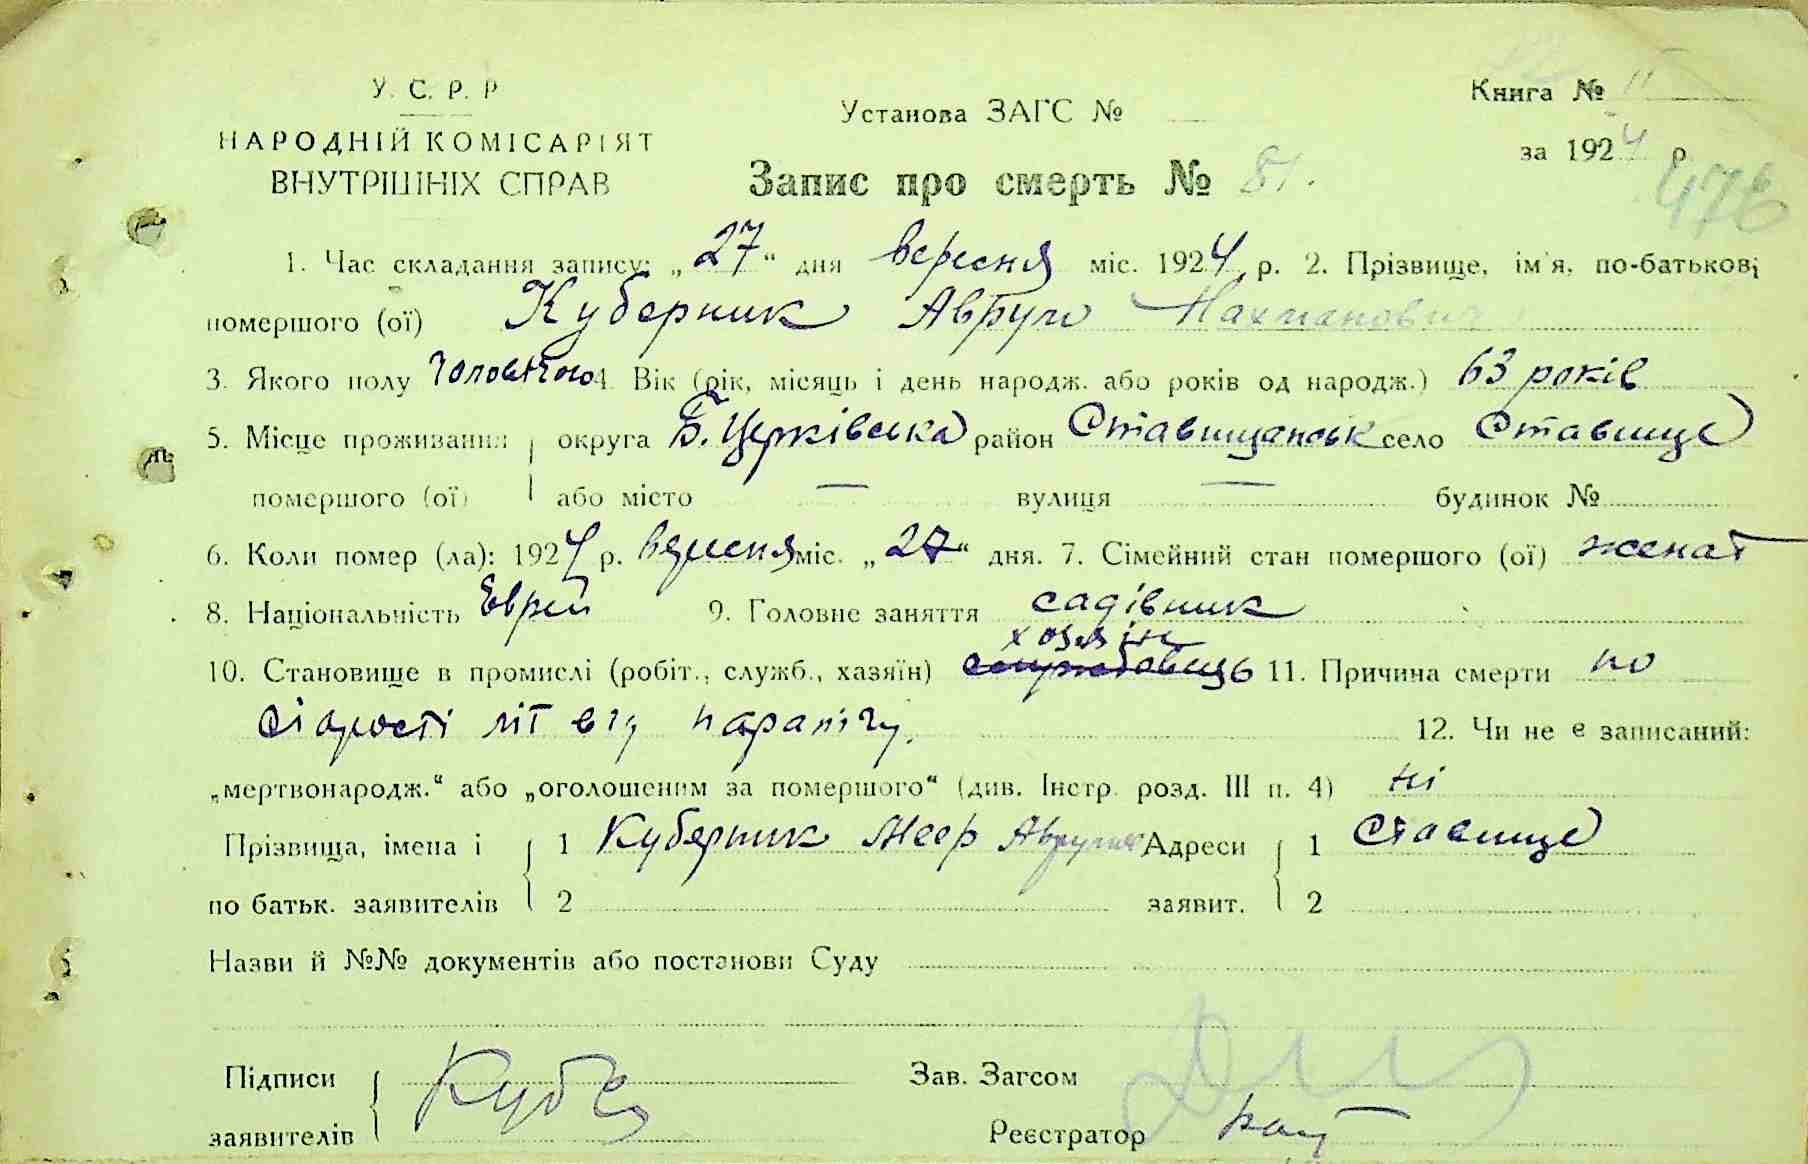 У. С. Р. Р
НАРОДНІЙ КОМІСАРІЯТ
ВНУТРІШНІХ СПРАВ
Установа ЗАГС №
Книга № II
за 1924 р
Запис про смерть № 81.
476
1. Час складання запису: „27“ дня вересня міс. 1924 р. 2. Прізвище, ім'я, по-батькові
помершого (ої) Куберник Аврум Нахманович
3. Якого полу чоловічого 4. Вік (рік, місяць і день народж. або років од народж.) 63 років
5. Місце проживання округа Б. Церківська район Ставищанськ село Ставище
помершого (ої) або місто — вулиця — будинок №
6. Коли помер (ла): 1924 р. вересня міс. „27“ дня. 7. Сімейний стан помершого (ої) женат
8. Національність Еврей 9. Головне заняття садівник
хозяін
10. Становище в промислі (робіт., служб., хазяїн) службовець 11. Причина смерти по
старості літ від параличу.
12. Чи не є записаний:
„мертвонародж.“ або „оголошеним за помершого“ (див. Інстр. розд. III п. 4) ні
Прізвища, імена і 1 Куберник Меер Аврумов Адреси 1 Ставище
по батьк. заявителів 2 заявит. 2
Назви й №№ документів або постанови Суду
Підписи Зав. Загсом
заявителів Реєстратор